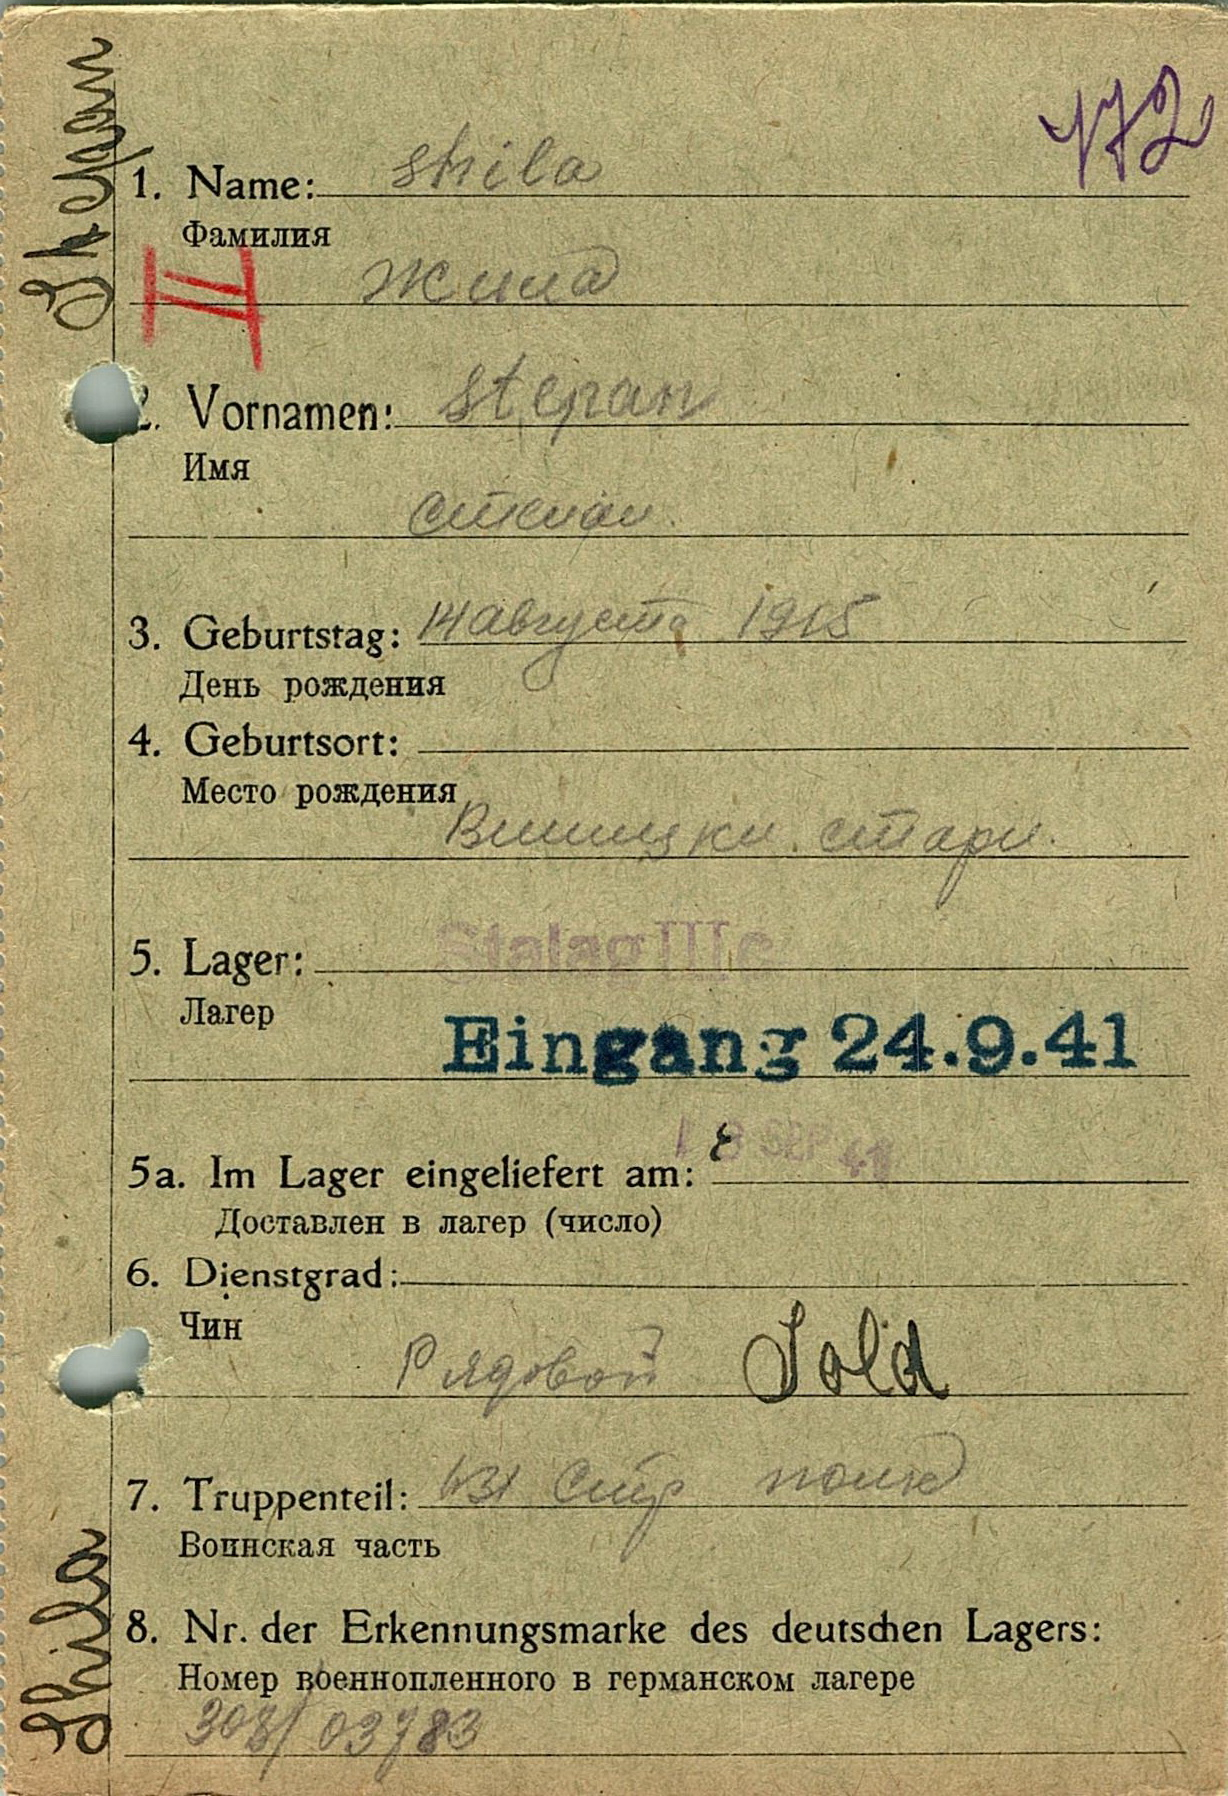 172
1. Name: Shila
Фамилия
Жила
II
2. Vornamen: Stepan
Имя
Степан
3. Geburtstag: 14 августа 1915
День рождения
4. Geburtsort:
Место рождения
стари.
5. Lager: Stalag IIIc
Лагер
Eingang 24.9.41
5a. Im Lager eingeliefert am: 18 SEP 41
Доставлен в лагер (число)
6. Dienstgrad:
Чин
Рядовой Sold
7. Truppenteil: 431 стр полк
Воинская часть
8. Nr. der Erkennungsmarke des deutschen Lagers:
Номер военнопленного в германском лагере
308/03783
Shila Stepan